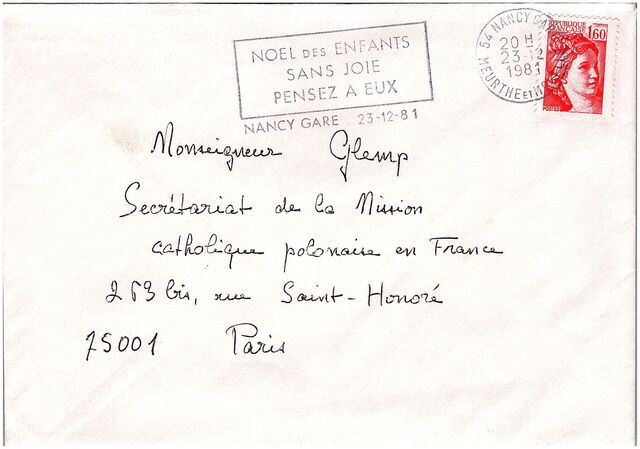 NOEL DES ENFANTS
SANS JOIE
PENSEZ A EUX
NANCY GARE 23-12-81
54 NANCY GARE
20 H
23-12
1981
MEURTHE ET
REPUBLIQUE
FRANCAISE
1,60
POSTES
Monseigneur Glemp
Secrétariat de la Mission
catholique polonaise en France
263 bis, rue Saint-Honoré
75001 Paris